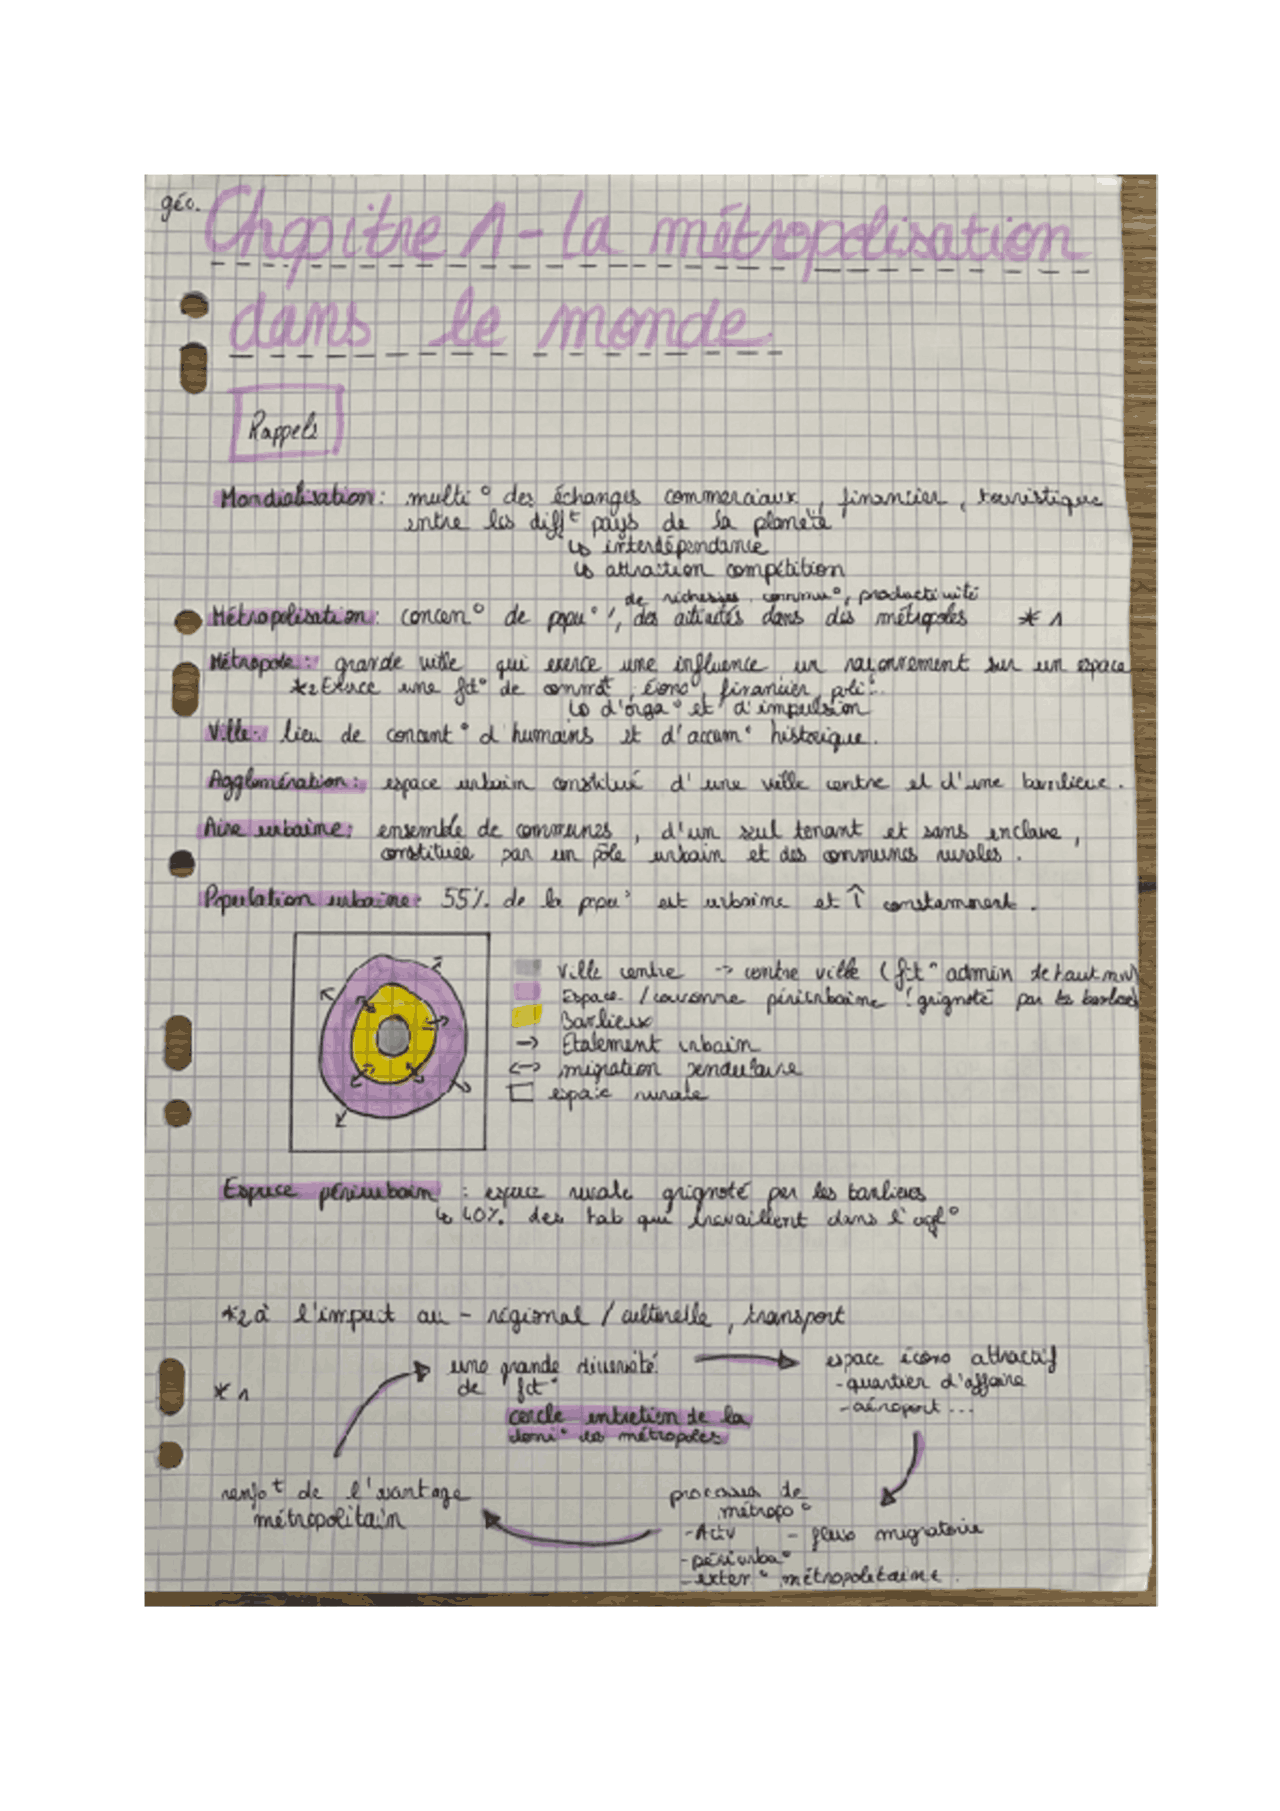 géo.
Chapitre 1 - la métropolisation
dans le monde
Rappels
Mondialisation : multi° des échanges commerciaux, financier, touristique
entre les difft pays de la planète
↳ interdépendance
↳ attraction compétition
de richesses, commu°, productivité
Métropolisation : concen° de popu°, des activités dans des métropoles *1
Métropole : grande ville qui exerce une influence un rayonnement sur un espace
*2 Exerce une fct° de commt, écono, financier, poli
↳ d'orga° et d'impulsion
Ville : lieu de concent° d'humains et d'accum° historique.
Agglomération : espace urbain constitué d'une ville centre et d'une banlieue.
Aire urbaine : ensemble de communes, d'un seul tenant et sans enclave,
constituée par un pôle urbain et des communes rurales.
Population urbaine : 55% de la popu° est urbaine et ↑ constamment.
Ville centre → centre ville (fct° admin de haut niv)
Espace / couronne périurbaine (grignoté par les banlieues
Banlieue
→ Etalement urbain
↔ migration pendulaire
espace rurale
Espace périurbain : espace rurale grignoté par les banlieues
↳ 40% des hab qui travaillent dans l'agl°
*2 à l'impact au - régional / culturelle, transport
*1
une grande diversité
de fct°
espace écono attractif
- quartier d'affaire
- aéroport ...
cercle entretien de la
domi° des métropoles
renfot de l'avantage
métropolitain
processus de
métropo°
- Activ - flux migratoire
- périurba°
- exter° métropolitaine.